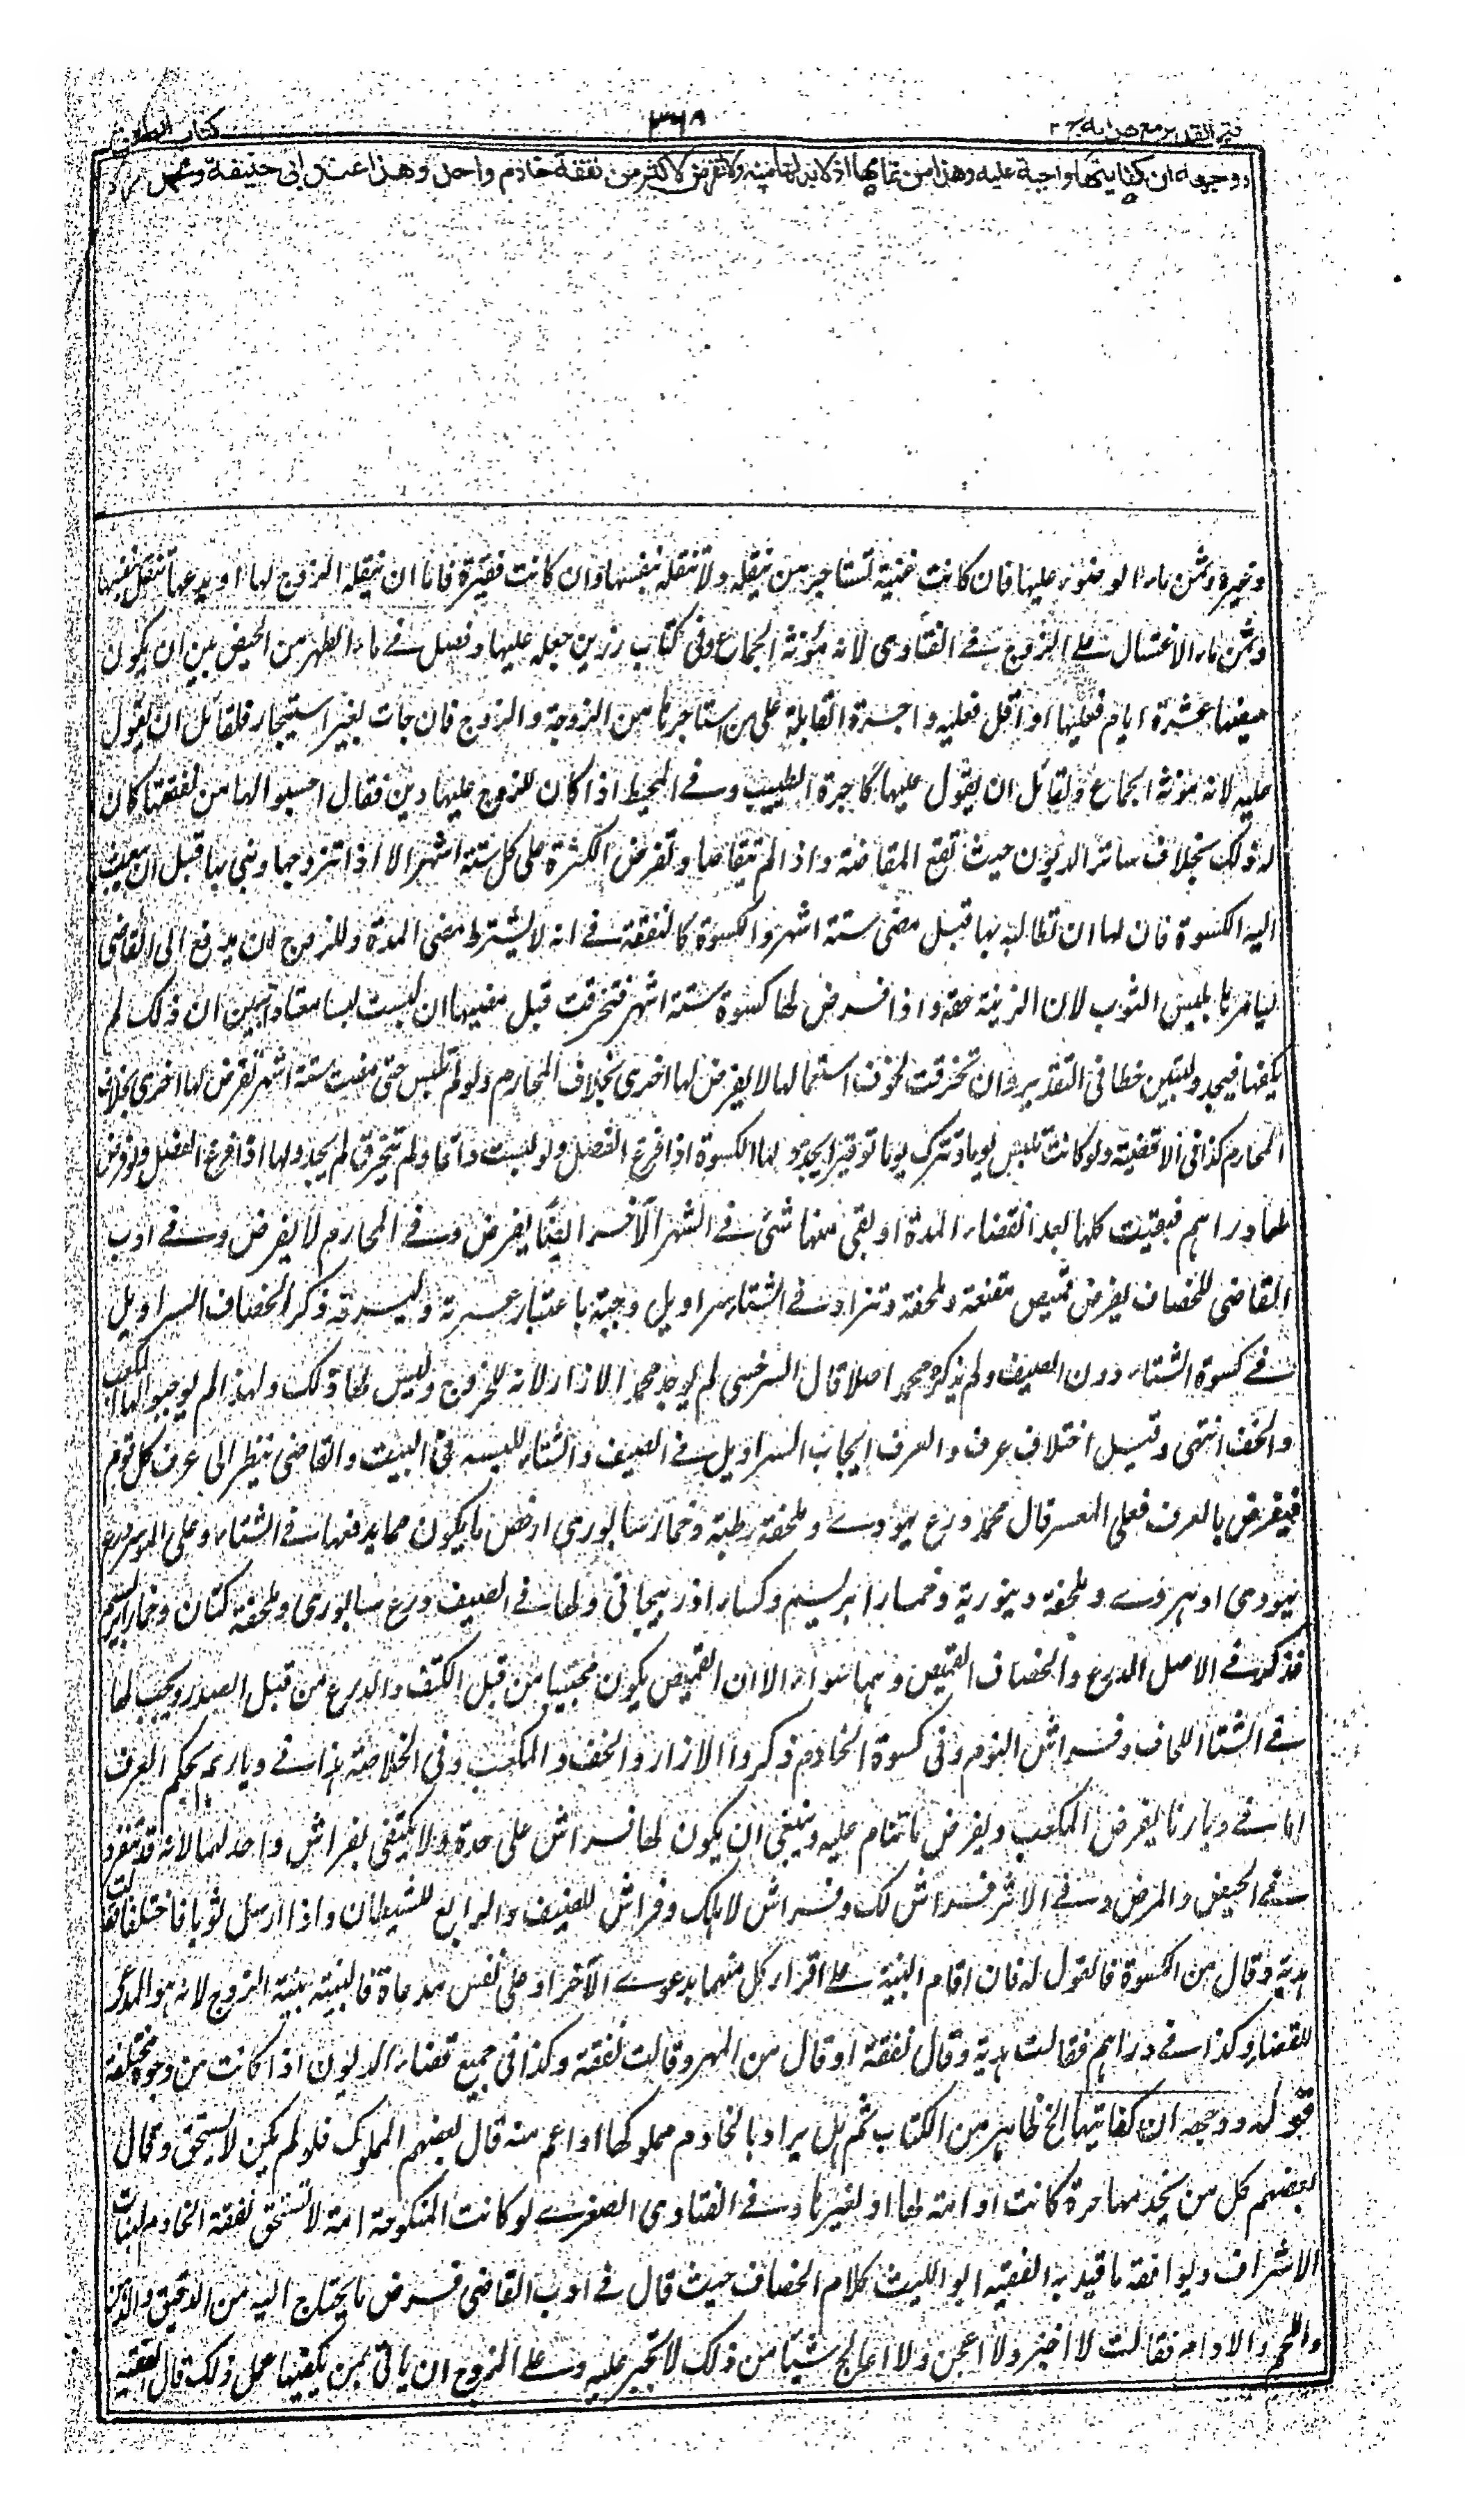 فتح القدير مع هدايه ج ٢
٣٦٨
كتاب الطلاق
ووجهه ان كفايتها واجبة عليه وهذا من تمامها اذ لابد لها منه ولا تفرض لاكثر من نفقة خادم واحد وهذا عند ابي حنيفة ومحمد
وغيره وثمن ماء الوضوء عليها فان كانت غنية تستاجر من ينقله ولا تنقله بنفسها وان كانت فقيرة فاما ان ينقله الزوج لها او يدعها تنقل بنفسها
وثمن ماء الاغتسال على الزوج في الفتاوى لانه مؤنة الجماع وفى كتاب رزين جعله عليها وفصل في ماء الطهر من الحيض بين ان يكون
حيضها عشرة ايام فعليها او اقل فعليه واجرة القابلة على من استاجرها من الزوجة والزوج فان جاءت بغير استيجار فلقائل ان يقول
عليه لانه مؤنة الجماع ولقائل ان يقول عليها كاجرة الطبيب وفي المحيط اذا كان للزوج عليها دين فقال احسبوا لها من نفقتها كان
له ذلك بخلاف سائر الديون حيث تقع المقاصة واذا لم يتقاصا وتفرض الكسوة على كل ستة اشهر الا اذا تزوجها وبنى بها قبل ان يبعث
اليه الكسوة فان لها ان تطالبه بها قبل مضى ستة اشهر والكسوة كالنفقة في انه لا يشترط مضى المدة وللزوج ان يدفع الى القاضى
ليامرها بلبس الثوب لان الزينة حقه واذا فرض لها كسوة ستة اشهر فتخرقت قبل مضيها ان لبست لبسا معتادا تبين ان ذلك لم
يكفها فيجدد ولتبين خطا فى التقدير وان تخرقت لخرف استعمالها لا يفرض لها اخرى بخلاف المحارم ولو لم تلبس حتى مضت ستة اشهر تفرض لها اخرى بخلاف
المحارم كذا فى الاقضية ولو كانت تلبس يوما وتترك يوما توقيرا يجدد لها الكسوة اذا فرغ الفصل ولو لبست دائما ولم تتخرق لم يجدد لها اذا فرغ الفصل ولو فرض
لها دراهم فبقيت كلها بعد انقضاء المدة او بقى منها شئ في الشهر الآخر ايضا يفرض وفي المحارم لا يفرض وفي ادب
القاضى للخصاف يفرض قميص مقنعة وملحفة وتزاد في الشتاء سراويل وجبة باعتبار عسرته ويسرته وذكر الخصاف السراويل
في كسوة الشتاء دون الصيف ولم يذكره محمد اصلا قال السرخسى لم يوجد محمد الازار لانه للخروج وليس لها ذلك ولهذا لم يوجبوا لها المكعب
والخف انتهى وقيل اختلاف عرف والعرف ايجاب السراويل في الصيف والشتاء للبسه فى البيت والقاضى ينظر الى عرف كل قوم
فيفرض بالعرف فعلى المعسر قال محمد درع يهودى وملحفة رطبة وخمار سابورى ارخص ما يكون مما يدفئها في الشتاء وعلى الموسر درع
يهودى او هروى وملحفة دينورية وخمار ابريسم وكساء اذربيجانى ولها في الصيف درع سابورى وملحفة كتان وخمار ابريسم
فذكر في الاصل الدرع والخصاف القميص وهما سواء الا ان القميص يكون مجيبا من قبل الكتف والدرع من قبل الصدر ويجب لها
في الشتاء اللحاف وفراش النوم وفى كسوة الخادم ذكروا الازار والخف والمكعب وفى الخلاصة هذا في ديارهم بحكم العرف
اما في ديارنا يفرض المكعب ويفرض ما تنام عليه وينبغى ان يكون لها فراش على حدة ولا يكتفى بفراش واحد لهما لانه قد تنفرد
في الحيض والمرض وفي الاثر فراش لك وفراش لاهلك وفراش للضيف والرابع للشيطان واذا ارسل ثوبا فاختلفا قالت
هدية وقال من الكسوة فالقول له فان اقام البينة على اقرار كل منهما بدعوى الآخر او على نفس مدعاه فالبينة بينة الزوج لانه هو المدعى
للقضاء وكذا في دراهم فقالت هدية وقال نفقة او قال من المهر وقالت نفقة وكذا فى جميع قضاء الديون اذا كانت من وجوه مختلفة
قوله ووجهه ان كفايتها الخ ظاهر من الكتاب ثم هل يراد بالخادم مملوكها او اعم منه قال بعضهم المملوك فلو لم يكن لا يستحق وقال
بعضهم كل من يخدمها حرة كانت او امة لها او لغيرها وفي الفتاوى الصغرى لو كانت المنكوحة امة لا تستحق نفقة الخادم لبنات
الاشراف ويوافقه ما قيد به الفقيه ابو الليث كلام الخصاف حيث قال في ادب القاضى فرض ما يحتاج اليه من الدقيق والدهن
واللحم والادام فقالت لا اخبز ولا اعجن ولا اعالج شيئا من ذلك لا تجبر عليه وعلى الزوج ان ياتى بمن يكفيها عمل ذلك قال الفقيه